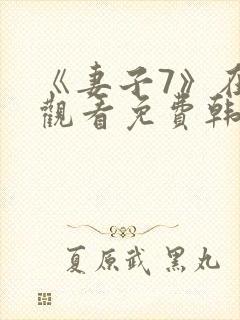 《妻子7》在
觀看免費韩
夏原武 黑丸